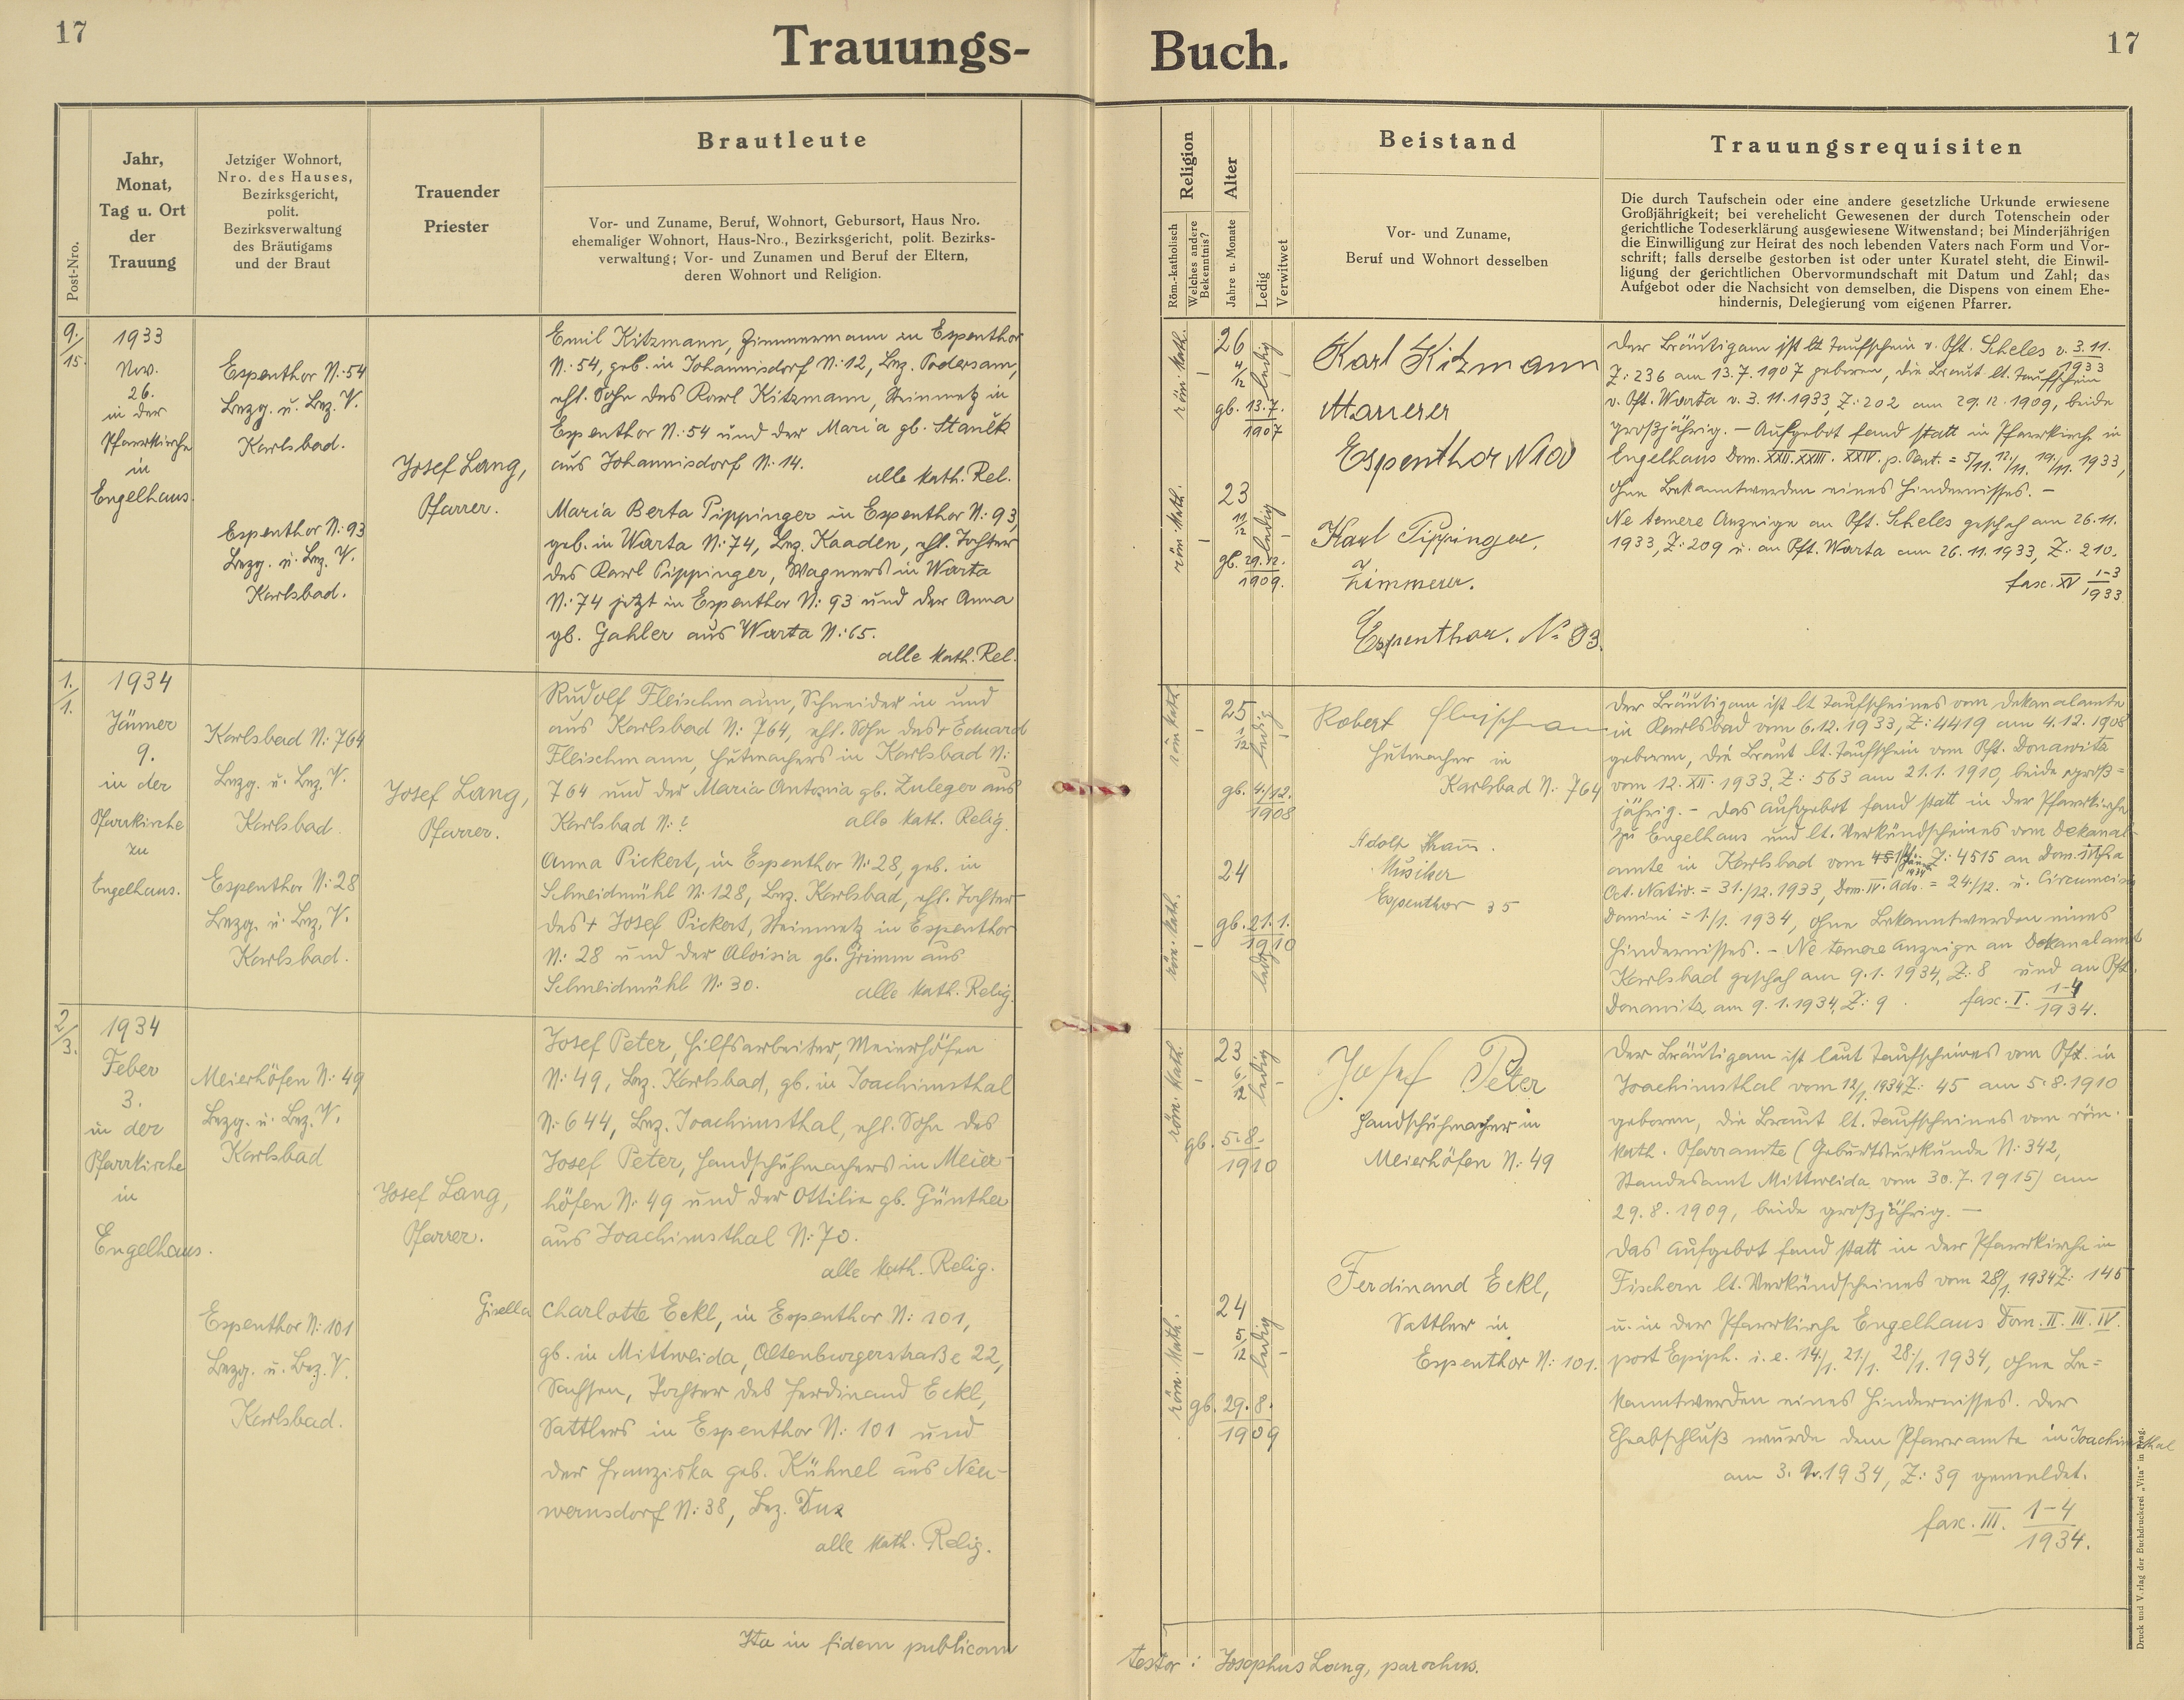 17
Trauungs-
Buch.
17
Post-Nro.
Jahr,
Monat,
Tag u. Ort
der
Trauung
Jetziger Wohnort,
Nro. des Hauses,
Bezirksgericht,
polit.
Bezirksverwaltung
des Bräutigams
und der Braut
Trauender
Priester
Brautleute
Vor- und Zuname, Beruf, Wohnort, Gebursort, Haus Nro.
ehemaliger Wohnort, Haus-Nro., Bezirksgericht, polit. Bezirks-
verwaltung; Vor- und Zunamen und Beruf der Eltern,
deren Wohnort und Religion.
Religion
Röm.-katholisch
Welches andere
Bekenntnis?
Alter
Jahre u. Monate
Ledig
Verwitwet
Beistand
Vor- und Zuname,
Beruf und Wohnort desselben
Trauungsrequisiten
Die durch Taufschein oder eine andere gesetzliche Urkunde erwiesene
Großjährigkeit; bei verehelicht Gewesenen der durch Totenschein oder
gerichtliche Todeserklärung ausgewiesene Witwenstand; bei Minderjährigen
die Einwilligung zur Heirat des noch lebenden Vaters nach Form und Vor-
schrift; falls derselbe gestorben ist oder unter Kuratel steht, die Einwil-
ligung der gerichtlichen Obervormundschaft mit Datum und Zahl; das
Aufgebot oder die Nachsicht von demselben, die Dispens von einem Ehe-
hindernis, Delegierung vom eigenen Pfarrer.
9./15.
1933
Nov.
26.
in der
Pfarrkirche
in
Engelhaus.
Espenthor N: 54
Bezg. u. Bez. V.
Karlsbad.
Espenthor N: 93
Bezg. u. Bez. V.
Karlsbad.
Josef Lang,
Pfarrer.
Emil Kitzmann, Zimmermann in Espenthor
N: 54, geb. in Johannisdorf N: 12, Bez. Podersam,
ehl. Sohn des Karl Kitzmann, Steinmetz in
Espenthor N: 54 und der Maria gb. Staněk
aus Johannisdorf N: 14.
alle kath. Rel.
Maria Berta Pippinger in Espenthor N: 93,
geb. in Warta N: 74, Bez. Kaaden, ehl. Tochter
des Karl Pippinger, Wagners in Warta
N: 74 jetzt in Espenthor N: 93 und der Anna
gb. Gahler aus Warta N: 65.
alle kath. Rel.
röm. kath.
26
4/12
ledig
gb. 13.7.
1907
röm. kath.
23
11/12
ledig
gb. 29.12.
1909.
Karl Kitzmann
Marrerer
Espenthor N
Karl Pippinger.
Zimmerer.
Espenthor. No 93.
Der Bräutigam ist lt Taufschein v. Pft. Scheles v. 3.11.
1933
Z: 236 am 13.7.1907 geboren, die Braut lt. Taufschein
v. Pft. Warta v. 3.11.1933, Z: 202 am 29.12.1909, beide
großjährig. – Aufgebot fand statt in Pfarrkirche in
Engelhaus Dom. XXII. XXIII. XXIV. p. Pent. = 5/11. 12./11. 19./11. 1933,
ohne Bekanntwerden eines Hindernisses. –
Ne temere Anzeige an Pft. Scheles geschah am 26.11.
1933, Z: 209 u. an Pft. Warta am 26.11.1933, Z: 210.
fasc. XV 1-3
1933.
1./1.
1934
Jänner
9.
in der
Pfarrkirche
zu
Engelhaus.
Karlsbad N: 764
Bezg. u. Bez. V.
Karlsbad.
Espenthor N: 28
Bezg. u. Bez. V.
Karlsbad.
Josef Lang,
Pfarrer.
Rudolf Fleischmann, Schneider in und
aus Karlsbad N: 764, ehl. Sohn des + Eduard
Fleischmann, Hutmachers in Karlsbad N:
764 und der Maria Antonia gb. Zuleger aus
Karlsbad N: ?
alle kath. Relig.
Anna Pickert, in Espenthor N: 28, geb. in
Schneidmühl N: 128, Bez. Karlsbad, ehl. Tochter
des + Josef Pickert, Steinmetz in Espenthor
N: 28 und der Aloisia gb. Grimm aus
Schneidmühl N: 30.
alle kath. Relig.
röm. kath.
25
1/12
ledig
gb. 4./12.
1908
röm. kath.
24
gb. 21.1.
1910
ledig
Robert Fleischmann
Hutmacher in
Karlsbad N: 764
Adolf
Musiker
Espenthor 35
Der Bräutigam ist lt Taufscheines vom Dekanalamte
in Karlsbad vom 6.12.1933, Z: 4419 am 4.12.1908
geboren, die Braut lt. Taufschein vom Pft. Donawitz
vom 12. XII. 1933, Z: 563 am 21.1.1910, beide groß=
jährig. – Das Aufgebot fand statt in der Pfarrkirche
zu Engelhaus und lt. Verkündscheines vom Dekanal-
amte in Karlsbad vom Z: 4515 an Dom. infra
Oct. Nativ. = 31./12. 1933, Dom. IV. Adv. = 24./12. u. Circumcisio
Domini = 1./1. 1934, ohne Bekanntwerden eines
Hindernisses. – Ne temere Anzeige an Dekanalamt
Karlsbad geschah am 9.1.1934, Z: 8 und an Pft.
Donawitz am 9.1.1934, Z: 9. fasc. I. 1-4
1934.
2/3.
1934
Feber
3.
in der
Pfarrkirche
in
Engelhaus.
Meierhöfen N: 49
Bezg. u. Bez. V.
Karlsbad
Espenthor N: 101
Bezg. u. Bez. V.
Karlsbad.
Josef Lang,
Pfarrer.
Josef Peter, Hilfsarbeiter, Meierhöfen
N: 49, Bez. Karlsbad, gb. in Joachimsthal
N: 644, Bez. Joachimsthal, ehl. Sohn des
Josef Peter, Handschuhmachers in Meier-
höfen N: 49 und der Ottilie gb. Günther
aus Joachimsthal N: 70.
alle kath. Relig.
Gisella Charlotte Eckl, in Espenthor N: 101,
gb. in Mittweida, Altenburgerstraße 22,
Sachsen, Tochter des Ferdinand Eckl,
Sattlers in Espenthor N: 101 und
der Franziska geb. Kühnel aus Neu-
wernsdorf N: 38, Bez. Dux
alle kath. Relig.
röm. kath.
23
6/12
ledig
gb. 5.8.
1910
röm. kath.
24
5/12
ledig
gb. 29.8.
1909
Josef Peter
Handschuhmacher in
Meierhöfen N: 49
Ferdinand Eckl,
Sattler in
Espenthor N: 101.
Der Bräutigam ist laut Taufscheines vom Pft. in
Joachimsthal vom 12/1. 1934 Z: 45 am 5.8.1910
geboren, die Braut lt. Taufscheines vom röm.
kath. Pfarramte (Geburtsurkunde N: 342,
Standesamt Mittweida vom 30.7.1915) am
29.8.1909, beide großjährig. –
Das Aufgebot fand statt in der Pfarrkirche in
Fischern lt. Verkündscheines vom 28/1. 1934 Z: 146
u. in der Pfarrkirche Engelhaus Dom. II. III. IV.
post Epiph. i. e. 14./1. 21./1. 28./1. 1934, ohne Be=
kanntwerden eines Hindernisses. Der
Eheabschluß wurde dem Pfarramte in Joachimsthal
am 3. 1934, Z: 39 gemeldet.
fasc. III. 1-4
1934.
Ita in fidem publicam
testor: Josephus Lang, parochus.
Druck und Verlag der Buchdruckerei „Vita" in Prag.